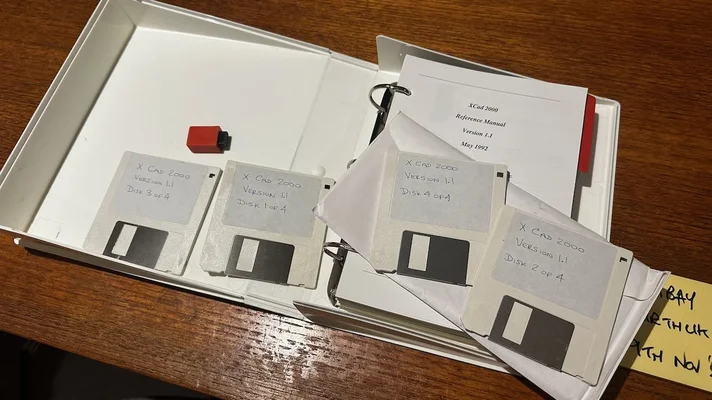 XCad 2000
Reference Manual
Version 1.1
May 1992
X CAD 2000
VERSION 1.1
DISK 3 OF 4
X CAD 2000
VERSION 1.1
DISK 1 OF 4
X CAD 2000
VERSION 1.1
DISK 4 OF 4
X CAD 2000
VERSION 1.1
DISK 2 OF 4
BAY
RTHUR
9TH NOV '9